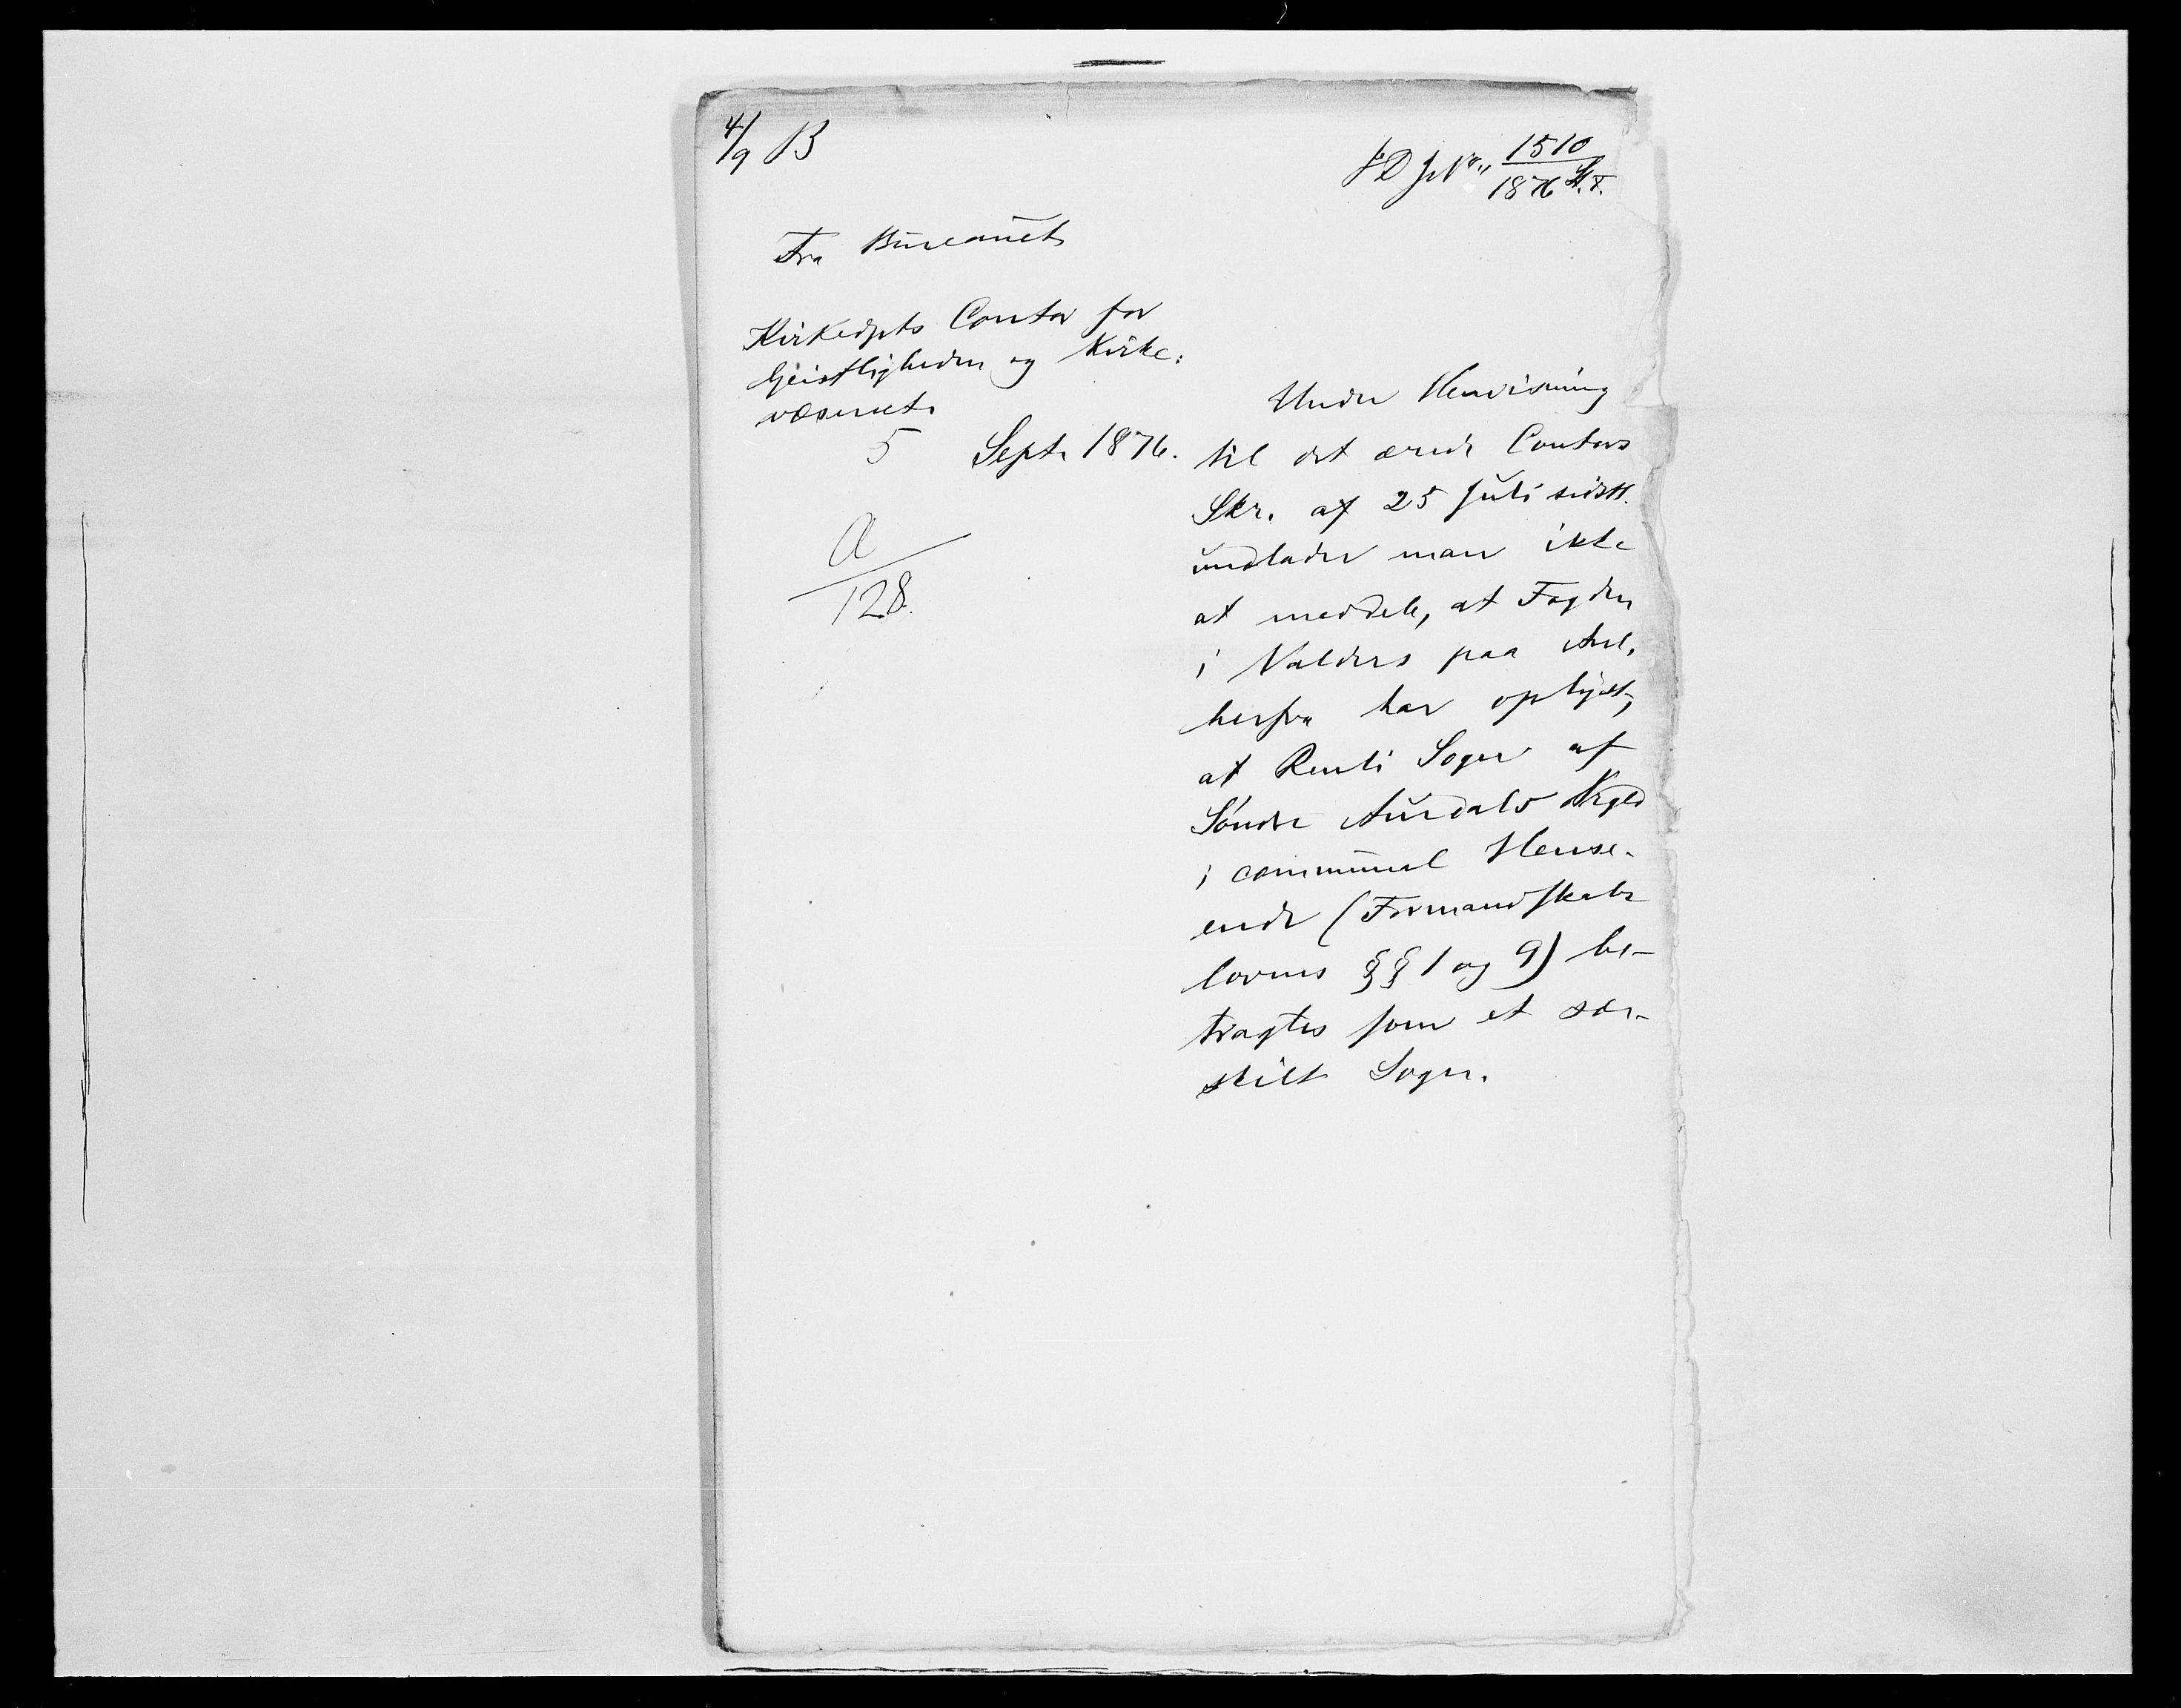 4/9 B
JD J. No. 1510/1876
Fra Bureauet
Kirkedpts Contor for
Geistligheden og Kirke:
væsenet.
5 Sept. 1876.
A/128.
Under Henvisning
til det ærede Contors
Skr. af 25 Juli sidstl.
undlader man ikke
at meddele, at Fogden
i Valders paa Anl.
herfra har oplyst,
at Renli Sogn af
Søndre Aurdals Prgld
i communal Hense-
ende (Formandskabs
lovens §§ 1 og 9) be-
tragtes som et sær-
skilt Sogn.